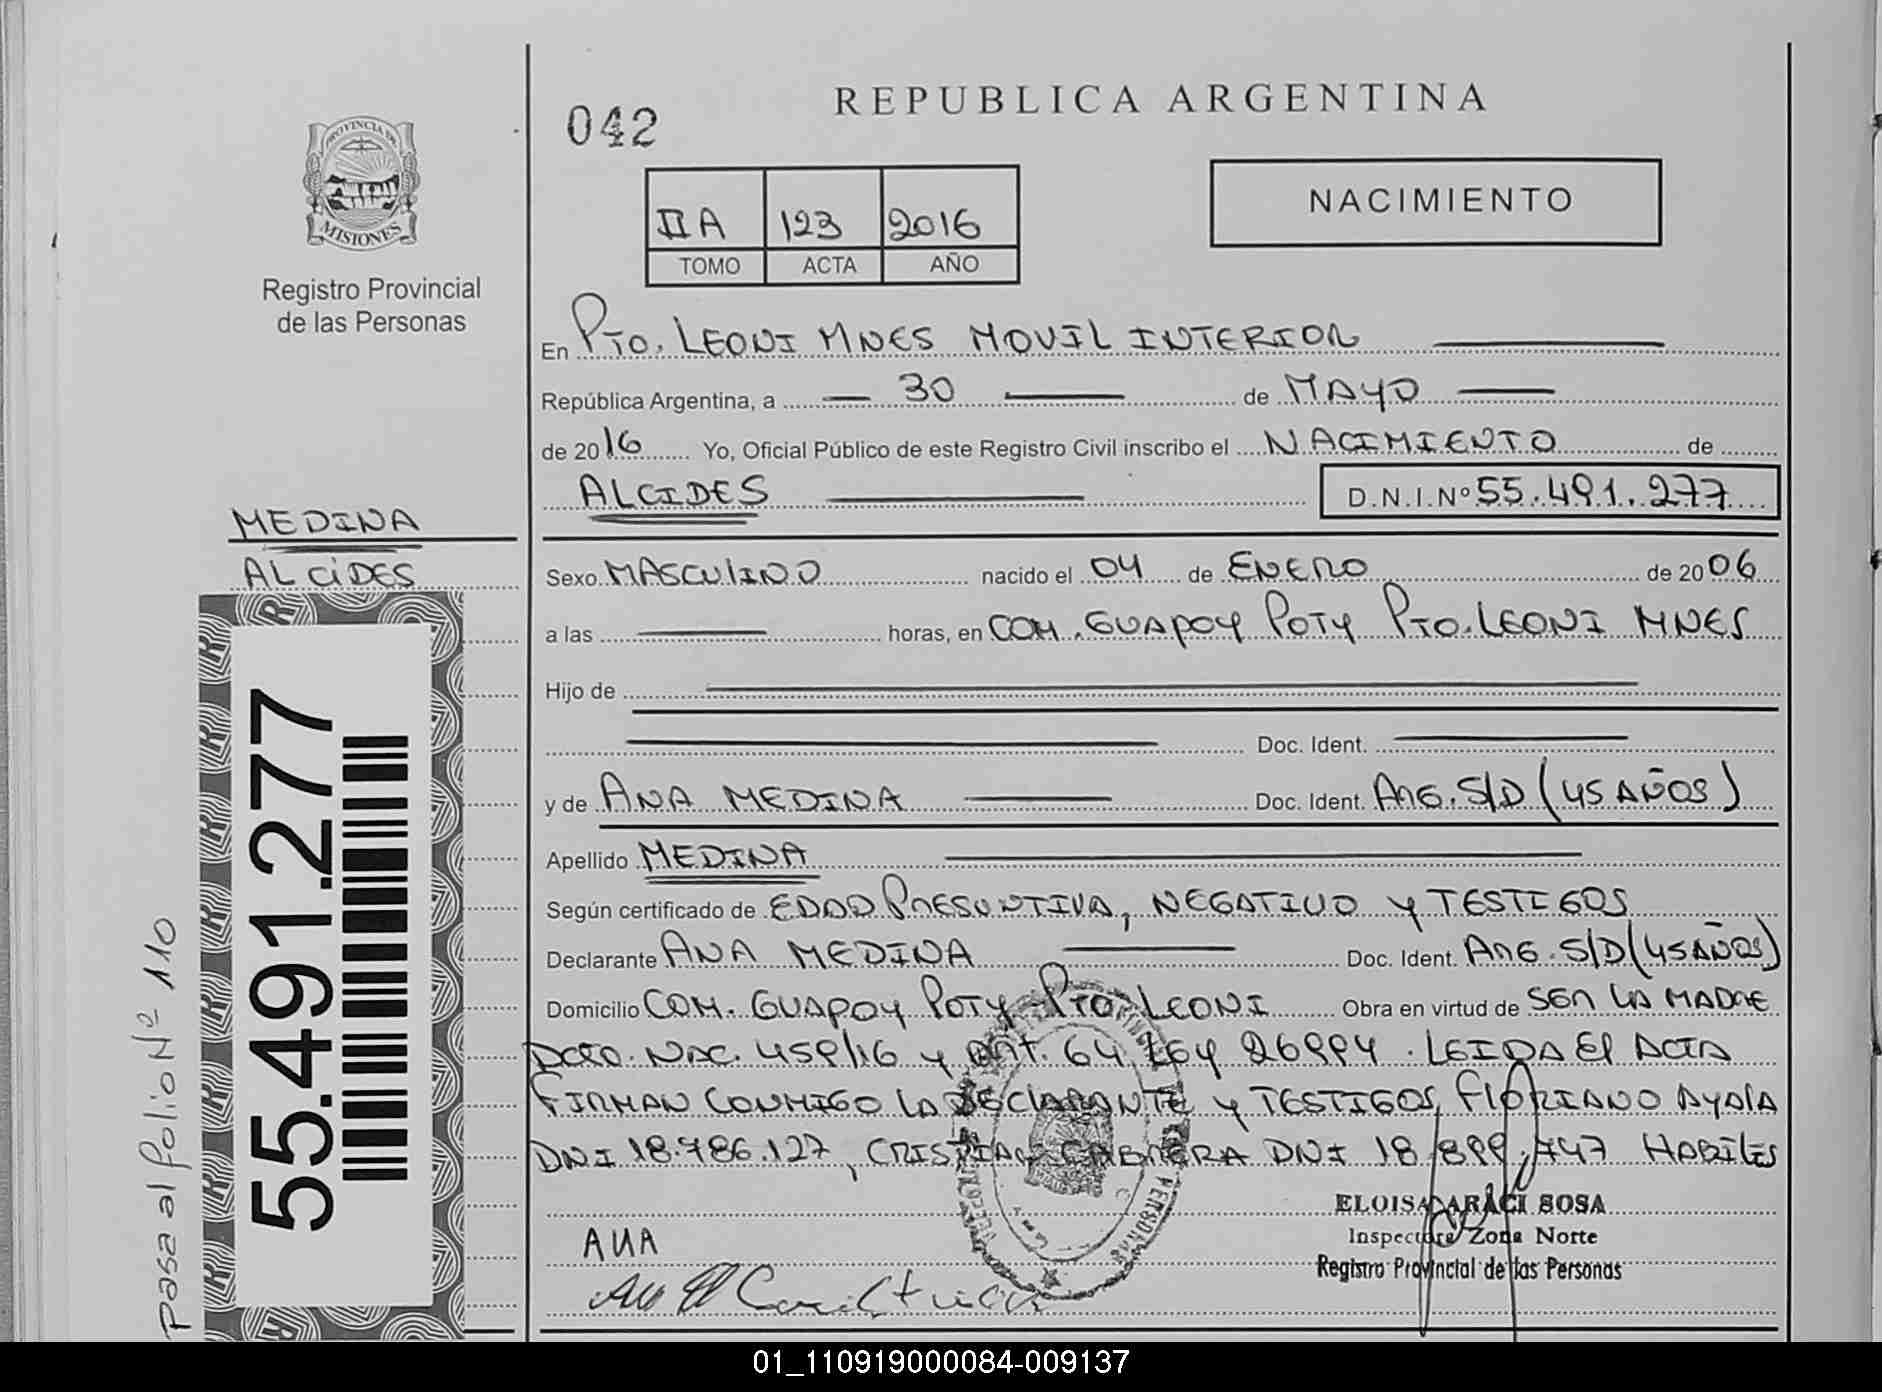 REPUBLICA ARGENTINA
042
PROVINCIA DE
MISIONES
Registro Provincial
de las Personas
IIA 123 2016
TOMO ACTA AÑO
NACIMIENTO
En PTO. LEONI MNES MOVIL INTERIOR
República Argentina, a 30 de MAYO
de 2016 Yo, Oficial Público de este Registro Civil inscribo el NACIMIENTO de
ALCIDES D.N.I.Nº 55.491.277
MEDINA
ALCIDES
Sexo MASCULINO nacido el 04 de ENERO de 2006
a las horas, en COM. GUAPOY POTY PTO. LEONI MNES
Hijo de
Doc. Ident.
y de ANA MEDINA Doc. Ident. ARG. S/D (45 AÑOS)
Apellido MEDINA
Según certificado de EDAD PRESUNTIVA, NEGATIVO Y TESTIGOS
Declarante ANA MEDINA Doc. Ident. ARG. S/D (45 AÑOS)
Domicilio COM. GUAPOY POTY PTO LEONI Obra en virtud de SER LA MADRE
DCTO. NAC. 459/16 Y ART. 64 LEY 26994. LEIDA EL ACTA
FIRMAN CONMIGO LA DECLARANTE Y TESTIGOS, FLORIANO AYALA
DNI 18.786.127, CRISTIAN CABRERA DNI 18.899.747 HABILES
ELOISA ARACI SOSA
Inspectora Zona Norte
Registro Provincial de las Personas
ANA
55.491.277
Pasa al folio Nº 110
PERSONAS
01_110919000084-009137